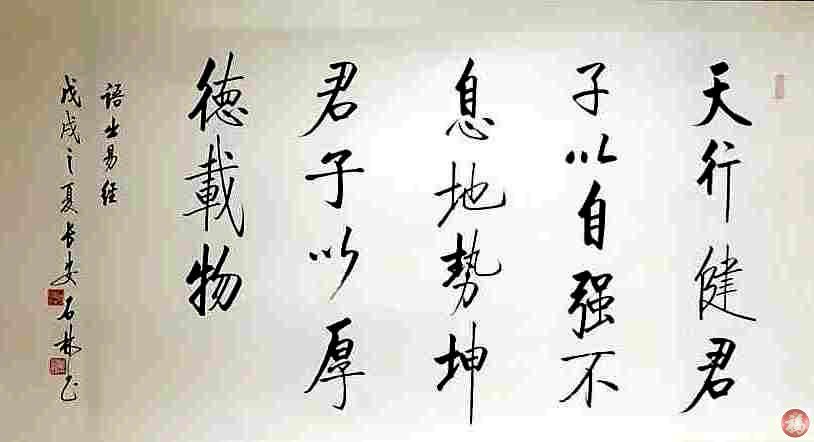 天行健君
子以自强不
息地势坤
君子以厚
德載物
語出易经
戊戌之夏长安石林书
福